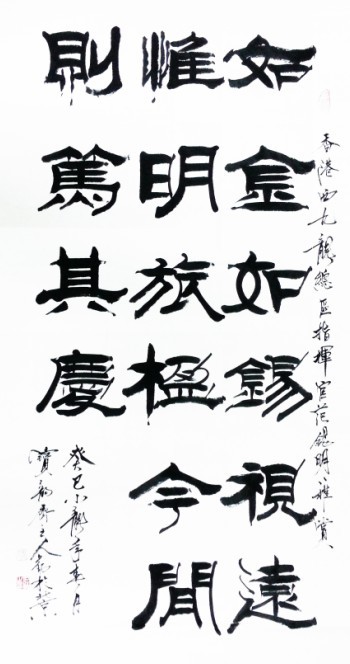 香港西九龍總區指揮官范錫明雅賞
如金如錫視遠
惟明旅楹今間
則篤其慶
癸巳小龍年春月
齋主人書於